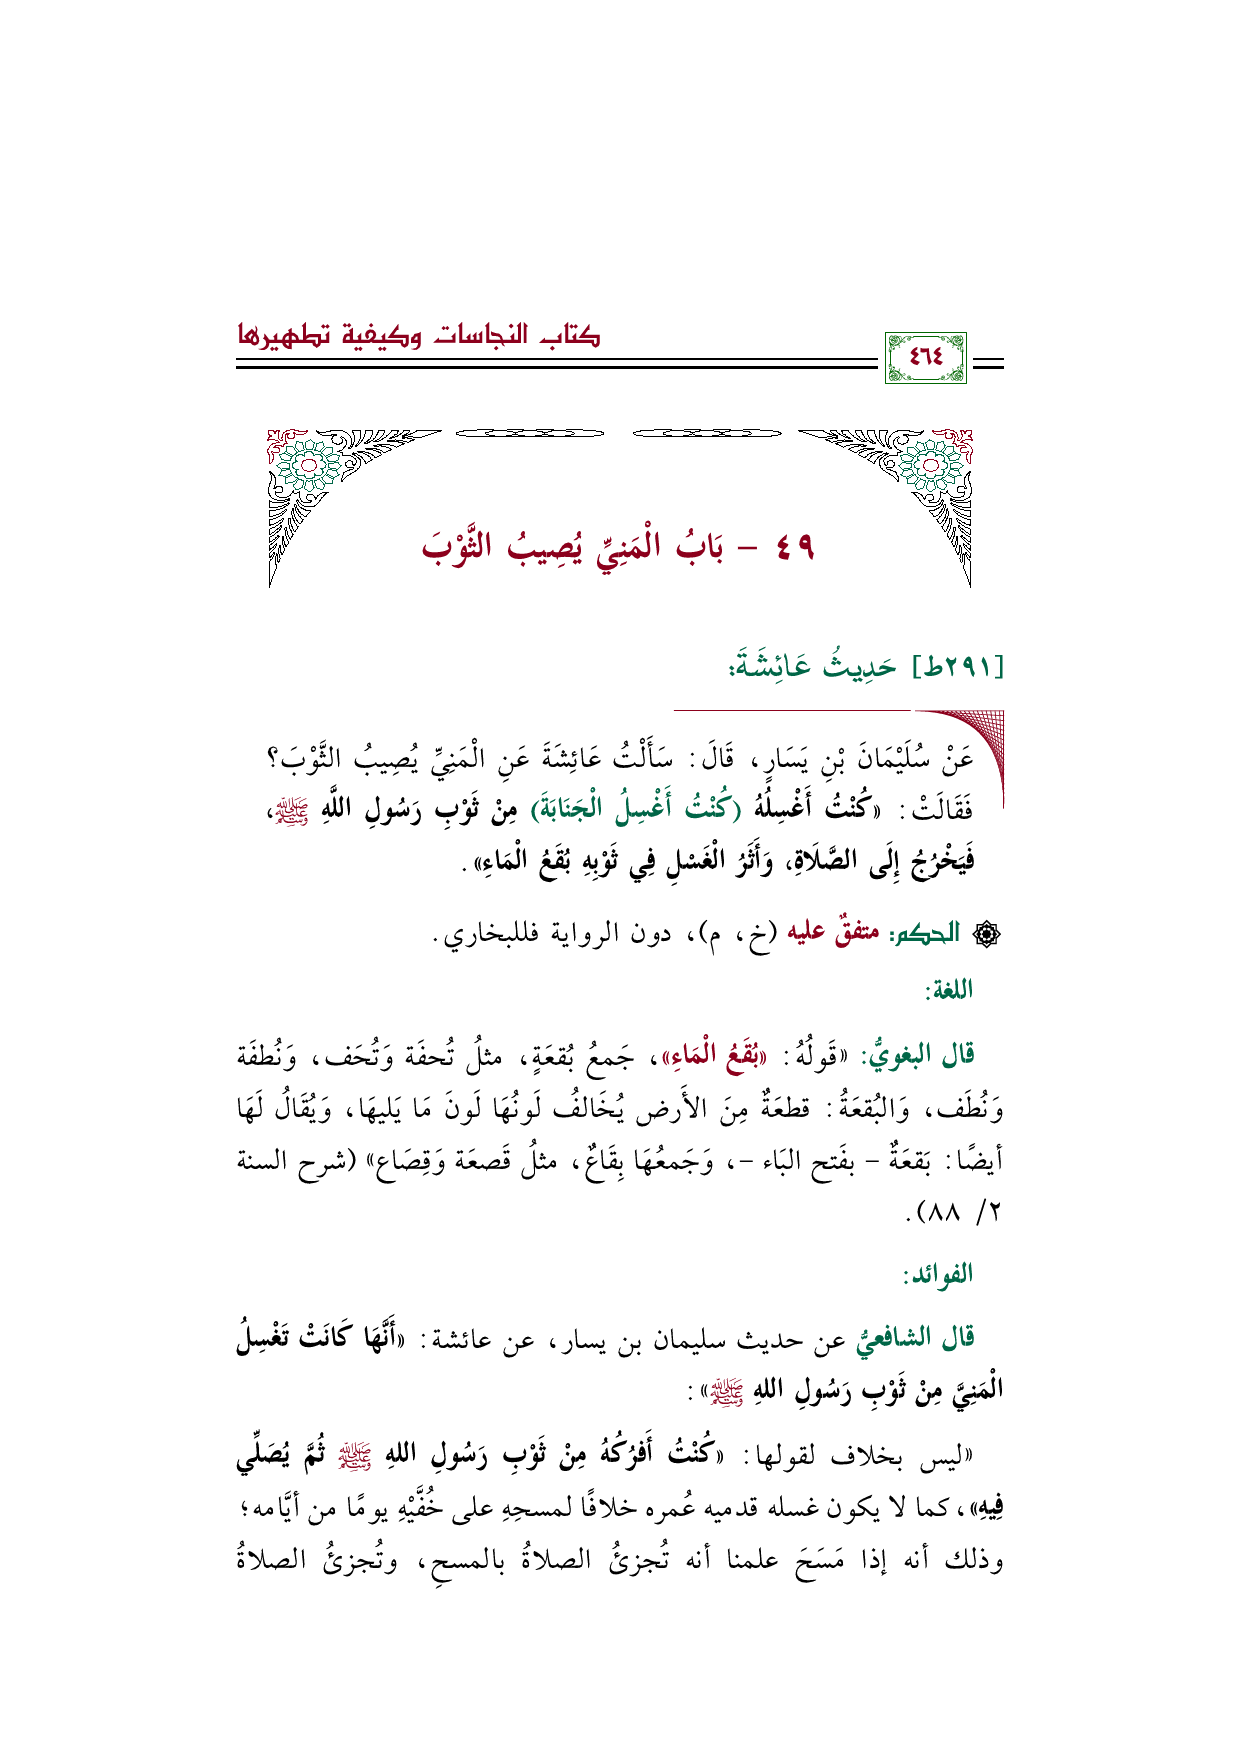 كتاب النجاسات وكيفية تطهيرها
٤٦٤
٤٩ - بَابُ الْمَنِيِّ يُصِيبُ الثَّوْبَ
[٢٩١ط] حَدِيثُ عَائِشَةَ:
عَنْ سُلَيْمَانَ بْنِ يَسَارٍ، قَالَ: سَأَلْتُ عَائِشَةَ عَنِ الْمَنِيِّ يُصِيبُ الثَّوْبَ؟
فَقَالَتْ: «كُنْتُ أَغْسِلُهُ (كُنْتُ أَغْسِلُ الْجَنَابَةَ) مِنْ ثَوْبِ رَسُولِ اللَّهِ ﷺ،
فَيَخْرُجُ إِلَى الصَّلَاةِ، وَأَثَرُ الْغَسْلِ فِي ثَوْبِهِ بُقَعُ الْمَاءِ».
الحكم: متفقٌ عليه (خ، م)، دون الرواية فللبخاري.
اللغة:
قال البغويُّ: «قَولُهُ: «بُقَعُ الْمَاءِ»، جَمعُ بُقعَةٍ، مثلُ تُحفَة وَتُحَف، وَنُطفَة
وَنُطَف، وَالبُقعَةُ: قطعَةٌ مِنَ الأَرض يُخَالفُ لَونُهَا لَونَ مَا يَليهَا، وَيُقَالُ لَهَا
أيضًا: بَقعَةٌ - بفَتح البَاء -، وَجَمعُهَا بِقَاعٌ، مثلُ قَصعَة وَقِصَاع» (شرح السنة
٢/ ٨٨).
الفوائد:
قال الشافعيُّ عن حديث سليمان بن يسار، عن عائشة: «أَنَّهَا كَانَتْ تَغْسِلُ
الْمَنِيَّ مِنْ ثَوْبِ رَسُولِ اللهِ ﷺ»:
«ليس بخلاف لقولها: «كُنْتُ أَفرُكُهُ مِنْ ثَوْبِ رَسُولِ اللهِ ﷺ ثُمَّ يُصَلِّي
فِيهِ»، كما لا يكون غسله قدميه عُمره خلافًا لمسحِهِ على خُفَّيْهِ يومًا من أيَّامه؛
وذلك أنه إذا مَسَحَ علمنا أنه تُجزئُ الصلاةُ بالمسحِ، وتُجزئُ الصلاةُ